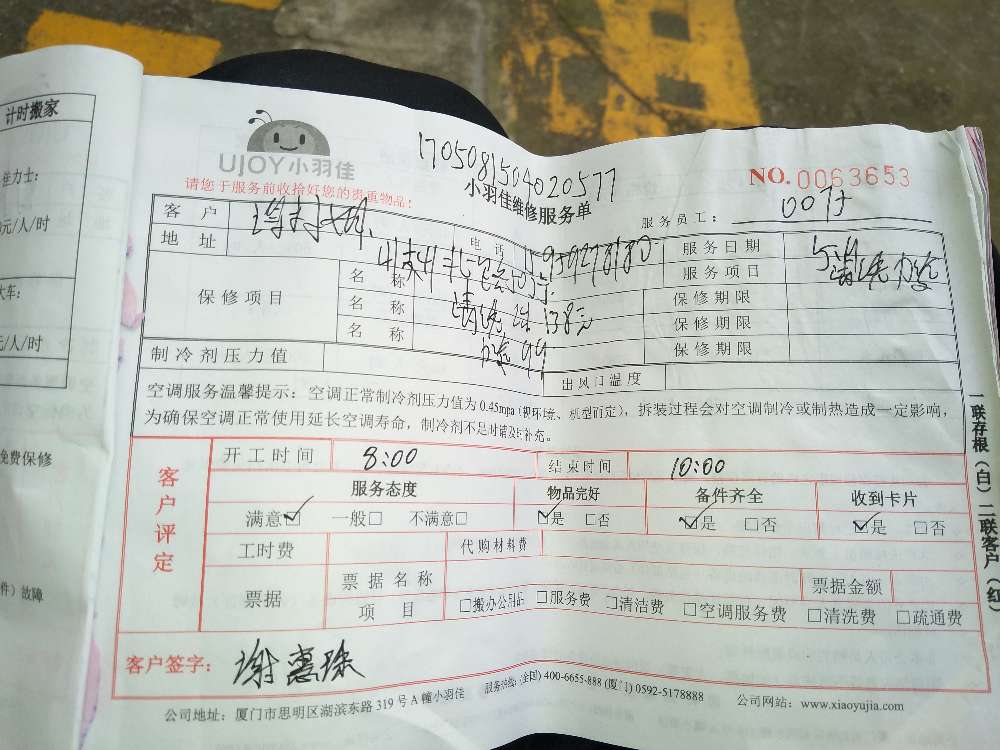 计时搬家
UJOY小羽佳
1705081504020577
请您于服务前收拾好您的贵重物品:
小羽佳维修服务单
NO.0063653
服务员工:
客 户
电 话
服务日期
地 址
服务项目
保修项目
名 称
保修期限
名 称
138元
保修期限
名 称
保修期限
制冷剂压力值
出风口温度
空调服务温馨提示: 空调正常制冷剂压力值为0.45mpa (视环境、机型而定), 拆装过程会对空调制冷或制热造成一定影响,
为确保空调正常使用延长空调寿命, 制冷剂不足时请及时补充。
客户评定
开工时间 8:00 结束时间 10:00
服务态度 物品完好 备件齐全 收到卡片
满意☑ 一般□ 不满意□ ☑是 □否 ☑是 □否 ☑是 □否
工时费 代购材料费
票据 票据名称 票据金额
项 目 □搬办公用品 □服务费 □清洁费 □空调服务费 □清洗费 □疏通费
客户签字: 谢惠珠
公司地址: 厦门市思明区湖滨东路 319 号 A 幢小羽佳 服务热线: (全国) 400-6655-888 (厦门) 0592-5178888 公司网站: www.xiaoyujia.com
一联存根(白) 二联客户(红)
元/人/时
元/人/时
免费保修
件) 故障